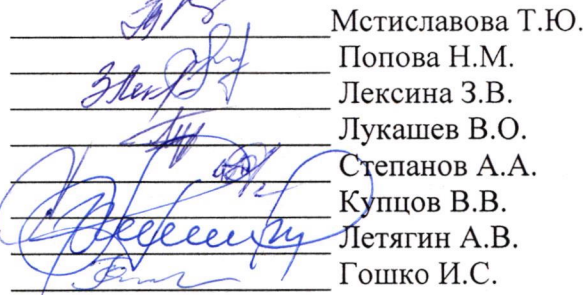 Мстиславова Т.Ю.
Попова Н.М.
Лексина З.В.
Лукашев В.О.
Степанов А.А.
Купцов В.В.
Летягин А.В.
Гошко И.С.